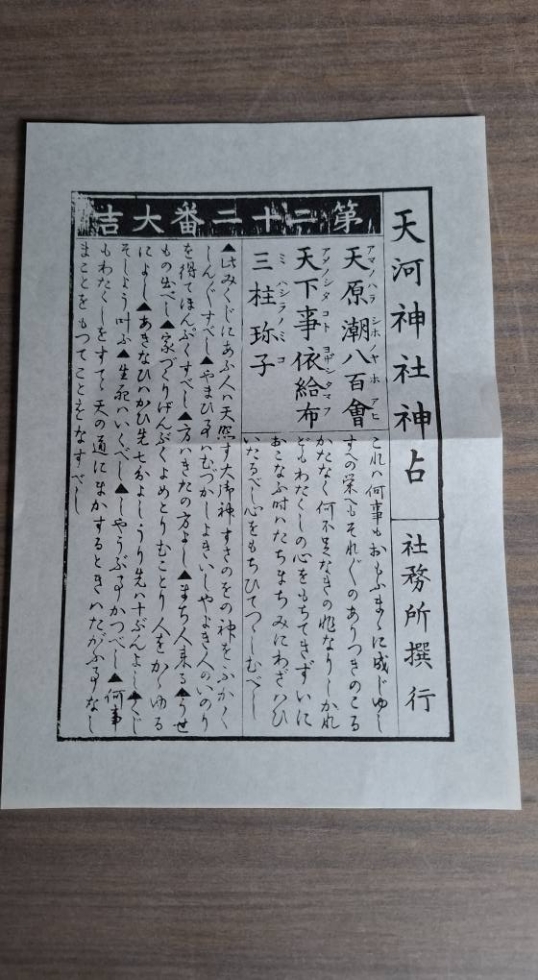 天河神社神占
社務所撰行
第二十二番大吉
天原潮八百會
アマノハラ シホノヤホアヒ
天下事依給布
アメノシタコト ヨザシタマフ
三柱珎子
ミハシラノミコ
これハ何事もおもふまゝに成じゆし
すへの栄へもそれ〴〵のありつきのこる
かたなく何不足なきの兆なりしかれ
どもわたくしの心をもちてきずいに
おこなふ時ハたちまちみにわざハひ
いたるべし心をもちひてつゝしむべし
▲此みくじにあふ人ハ天照す大御神すさのをの神をふかく
しんぐすべし▲やまひ事ハむづかしよきいしやよき人のいのり
を得てほんぷくすべし▲方ハきたの方よし▲まち人来る▲うせ
もの出べし▲家づくりげんぷくよめとりむことり人をかゝゆる
によし▲あきなひハかひ先七分よしうり先ハ十ぶんよし▲くじ
そしよう叶ふ▲生死ハいくべし▲しやうぶ事かつべし▲何事
もわたくしをすてゝ天の道にまかするときハたがふ事なし
まことをもつてことをなすべし